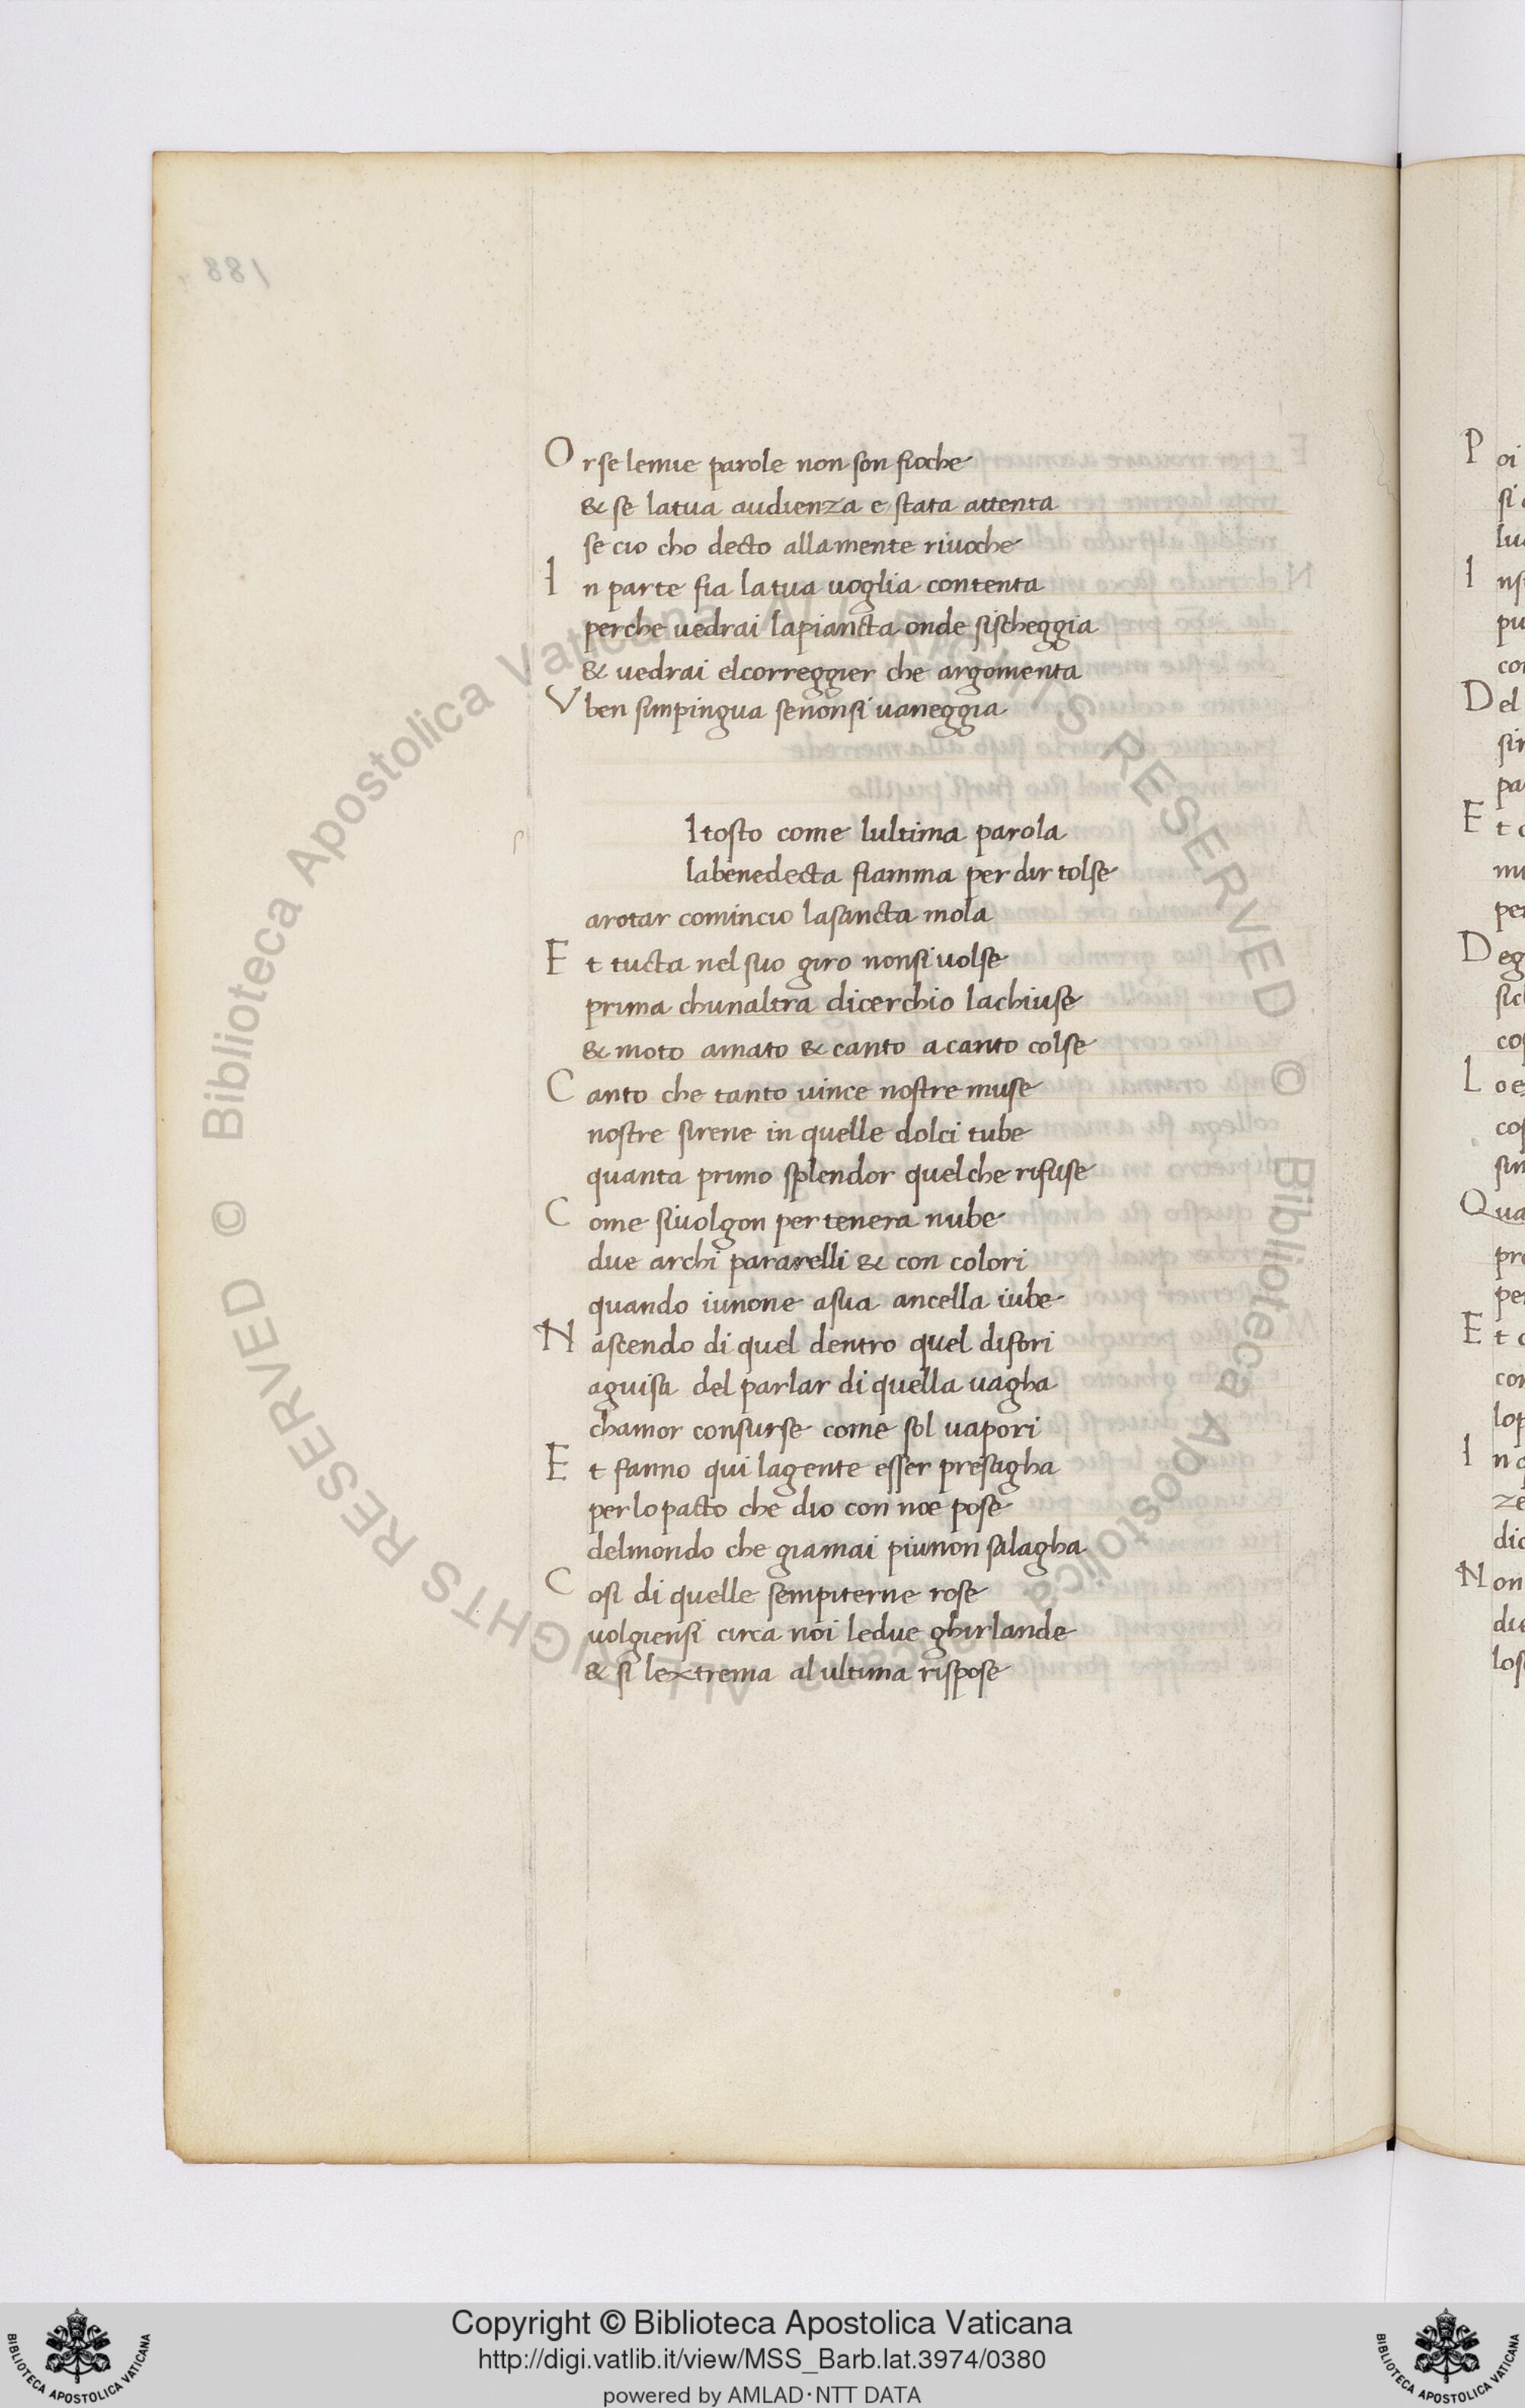 Orse lemie parole non son fioche
& se latua audienza e stata attenta
se cio cho decto allamente riuoche
In parte fia latua uoglia contenta
perche uedrai lapiancta onde sischeggia
& uedrai elcorreggier che argomenta
Vben simpingua senonsi uaneggia
Itosto come lultima parola
labenedecta fiamma per dir tolse
arotar comincio lasancta mola
Et tucta nel suo giro nonsi uolse
prima chunaltra dicerchio lachiuse
& moto amato & canto acanto colse
Canto che tanto uince nostre muse
nostre sirene in quelle dolci tube
quanta primo splendor quelche rifuse
Come siuolgon per tenera nube
due archi pararelli & con colori
quando iunone asua ancella iube
Nascendo di quel dentro quel difori
aguisa del parlar di quella uagha
chamor consurse come sol uapori
Et fanno qui lagente esser presagha
perlo pacto che dio con noe pose
delmondo che giamai piunon salagha
Cosi di quelle sempiterne rose
uolgiensi circa noi ledue ghirlande
& si lextrema alultima rispose
188
Poi
si
In
pu
Del
sin
pa
Et
per
Deg
Lo
sim
Qua
pr
pe
Et
con
lop
In
ze
dic
Non
los
Biblioteca Apostolica Vaticana ALL RIGHTS RESERVED © Biblioteca Apostolica Vaticana ALL RIGHTS RESERVED ©
Copyright © Biblioteca Apostolica Vaticana
http://digi.vatlib.it/view/MSS_Barb.lat.3974/0380
powered by AMLAD·NTT DATA
BIBLIOTECA APOSTOLICA VATICANA
BIBLIOTECA APOSTOLICA VATICANA